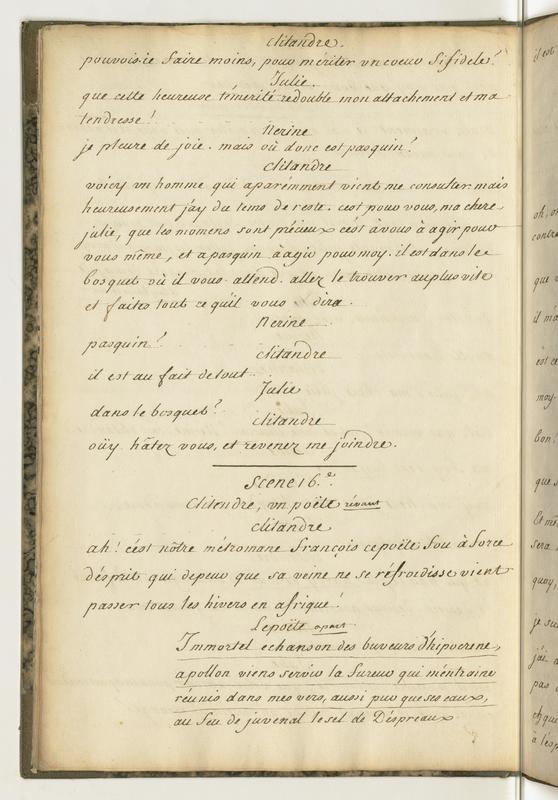 Clitandre.
pouvois-ie faire moins, pour mériter un coeur si fidele?
Julie.
que cette heureuse témerité redouble mon attachement et ma
tendresse!
Nerine
je pleure de joie. mais où donc est pasquin?
Clitandre
voicy un homme qui aparémment vient me consulter mais
heureusement j'ay du tems de reste. c'est pour vous, ma chere
julie, que les momens sont précieux c'ést à vous à agir pour
vous même, et a pasquin à agir pour moy. il est dans le
bosquet où il vous attend. allez le trouver au plus vite
et faites tout ce qu'il vous dira.
Nerine
pasquin?
Clitandre
il est au fait de tout.
Julie
dans le bosquet?
Clitandre
oüy hâtez vous, et revenez me joindre.
Scene 16.e
Clitendre, un poëte rêvant
Clitandre
ah! c'ést nôtre métromane françois ce poëte fou à force
d'ésprit qui de peur que sa veine ne se réfroidisse vient
passer tous les hivers en afrique!
Le poëte apart
Immortel echanson des buveurs d'hipocrene,
apollon viens servir la fureur qui m'entraine
réunis dans mes vers, aussi pur que ses eaux,
au feu de juvenal le sel de Déspreaux